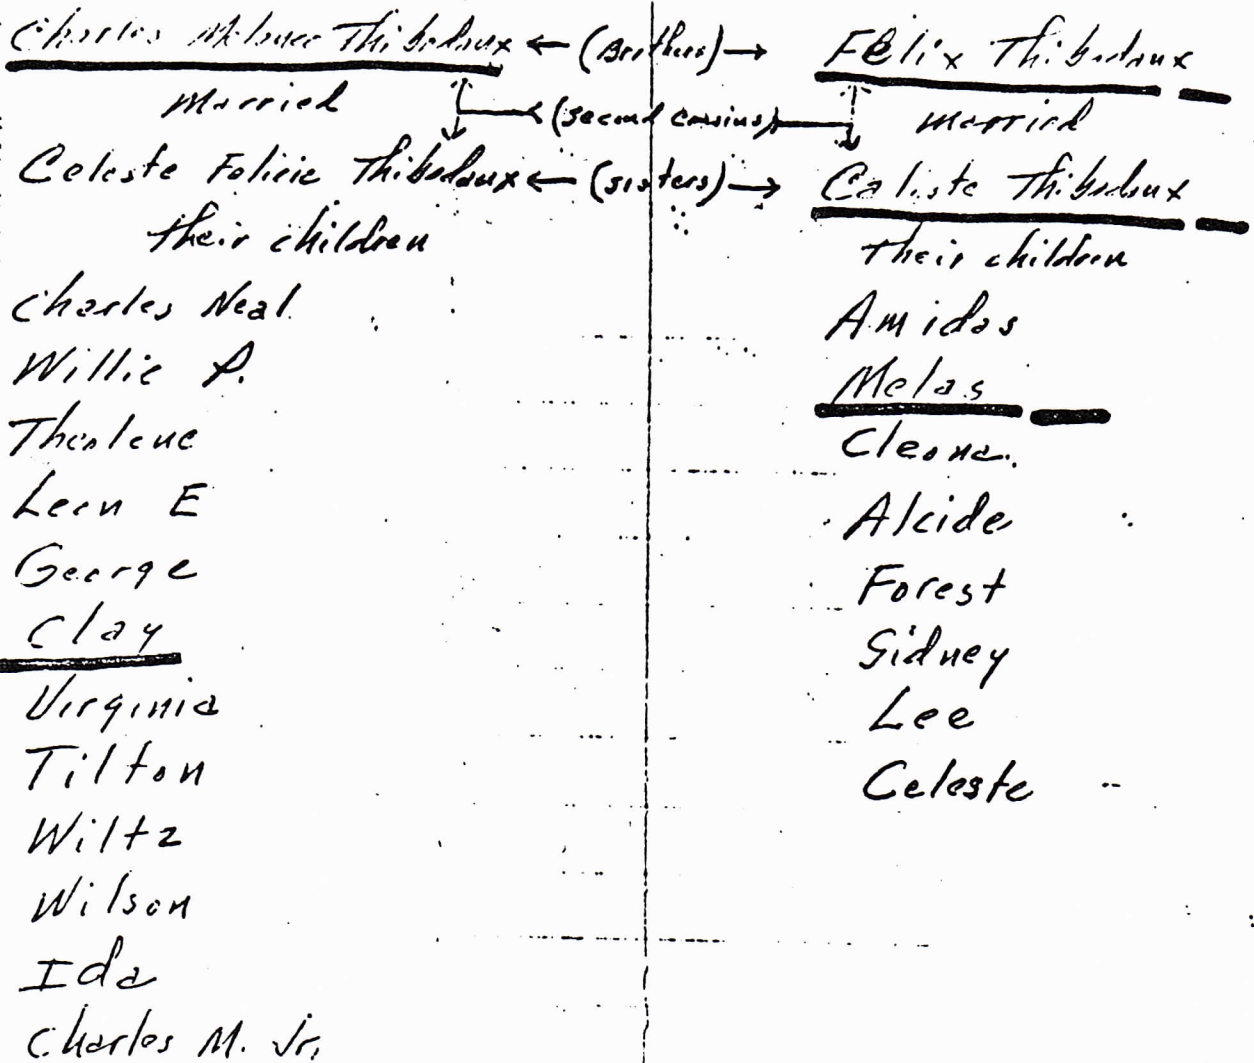 Charles Melance Thibodaux ← (Brothers) → Félix Thibodaux
married (second cousins) married
Celeste Folicie Thibodaux ← (sisters) → Caliste Thibodaux
their children
Their children
Charles Neal
Willie P.
Theolene
Leon E
George
Clay
Virginia
Tilton
Wiltz
Wilson
Ida
Charles M. Jr.
Amidas
Melas
Cleona.
Alcide
Forest
Sidney
Lee
Celeste